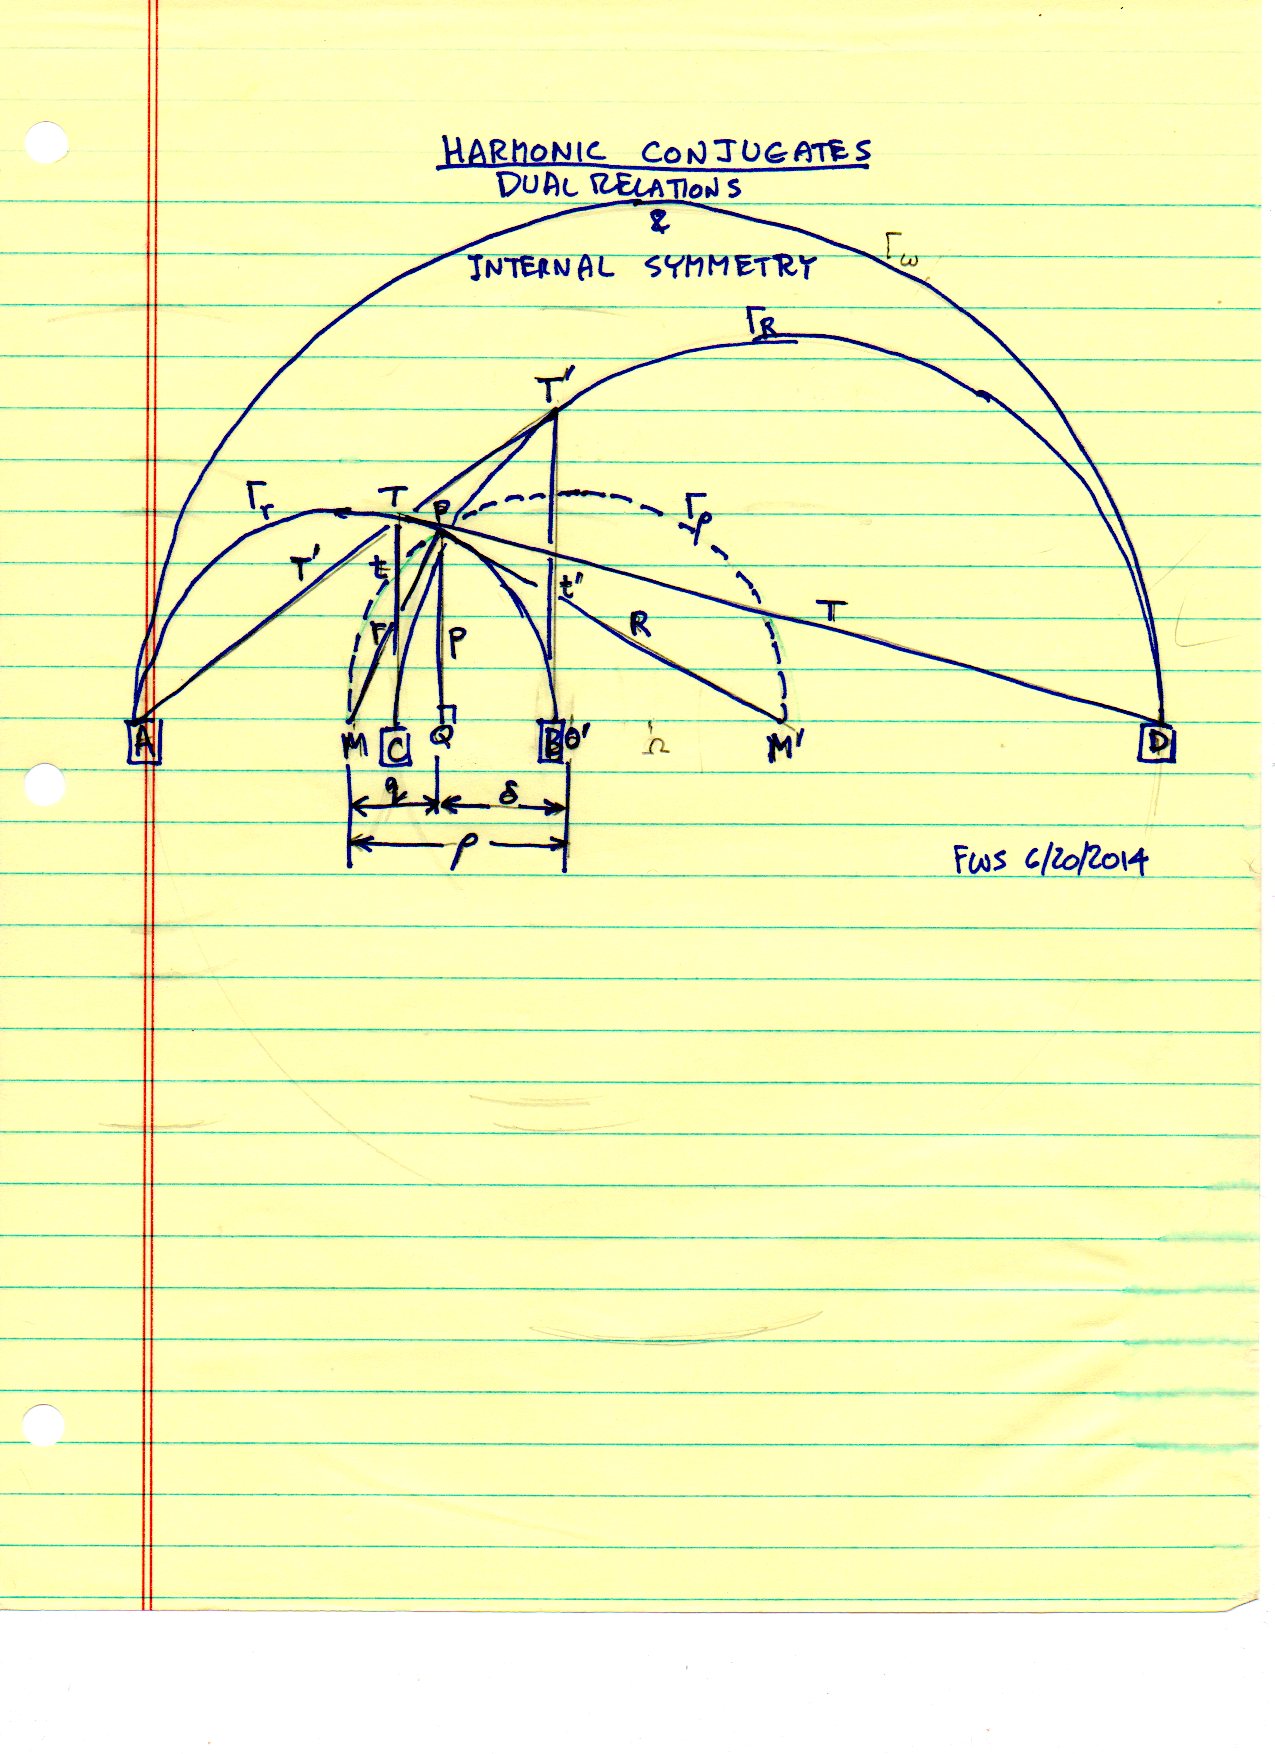 HARMONIC CONJUGATES
DUAL RELATIONS
&
INTERNAL SYMMETRY
Γω
ΓR
T"
Γr
T
P
Γρ
T'
t
t"
r
P
R
T
A
M
C
Q
B
θ'
Ω
M'
D
q
δ
ρ
FWS 6/20/2014